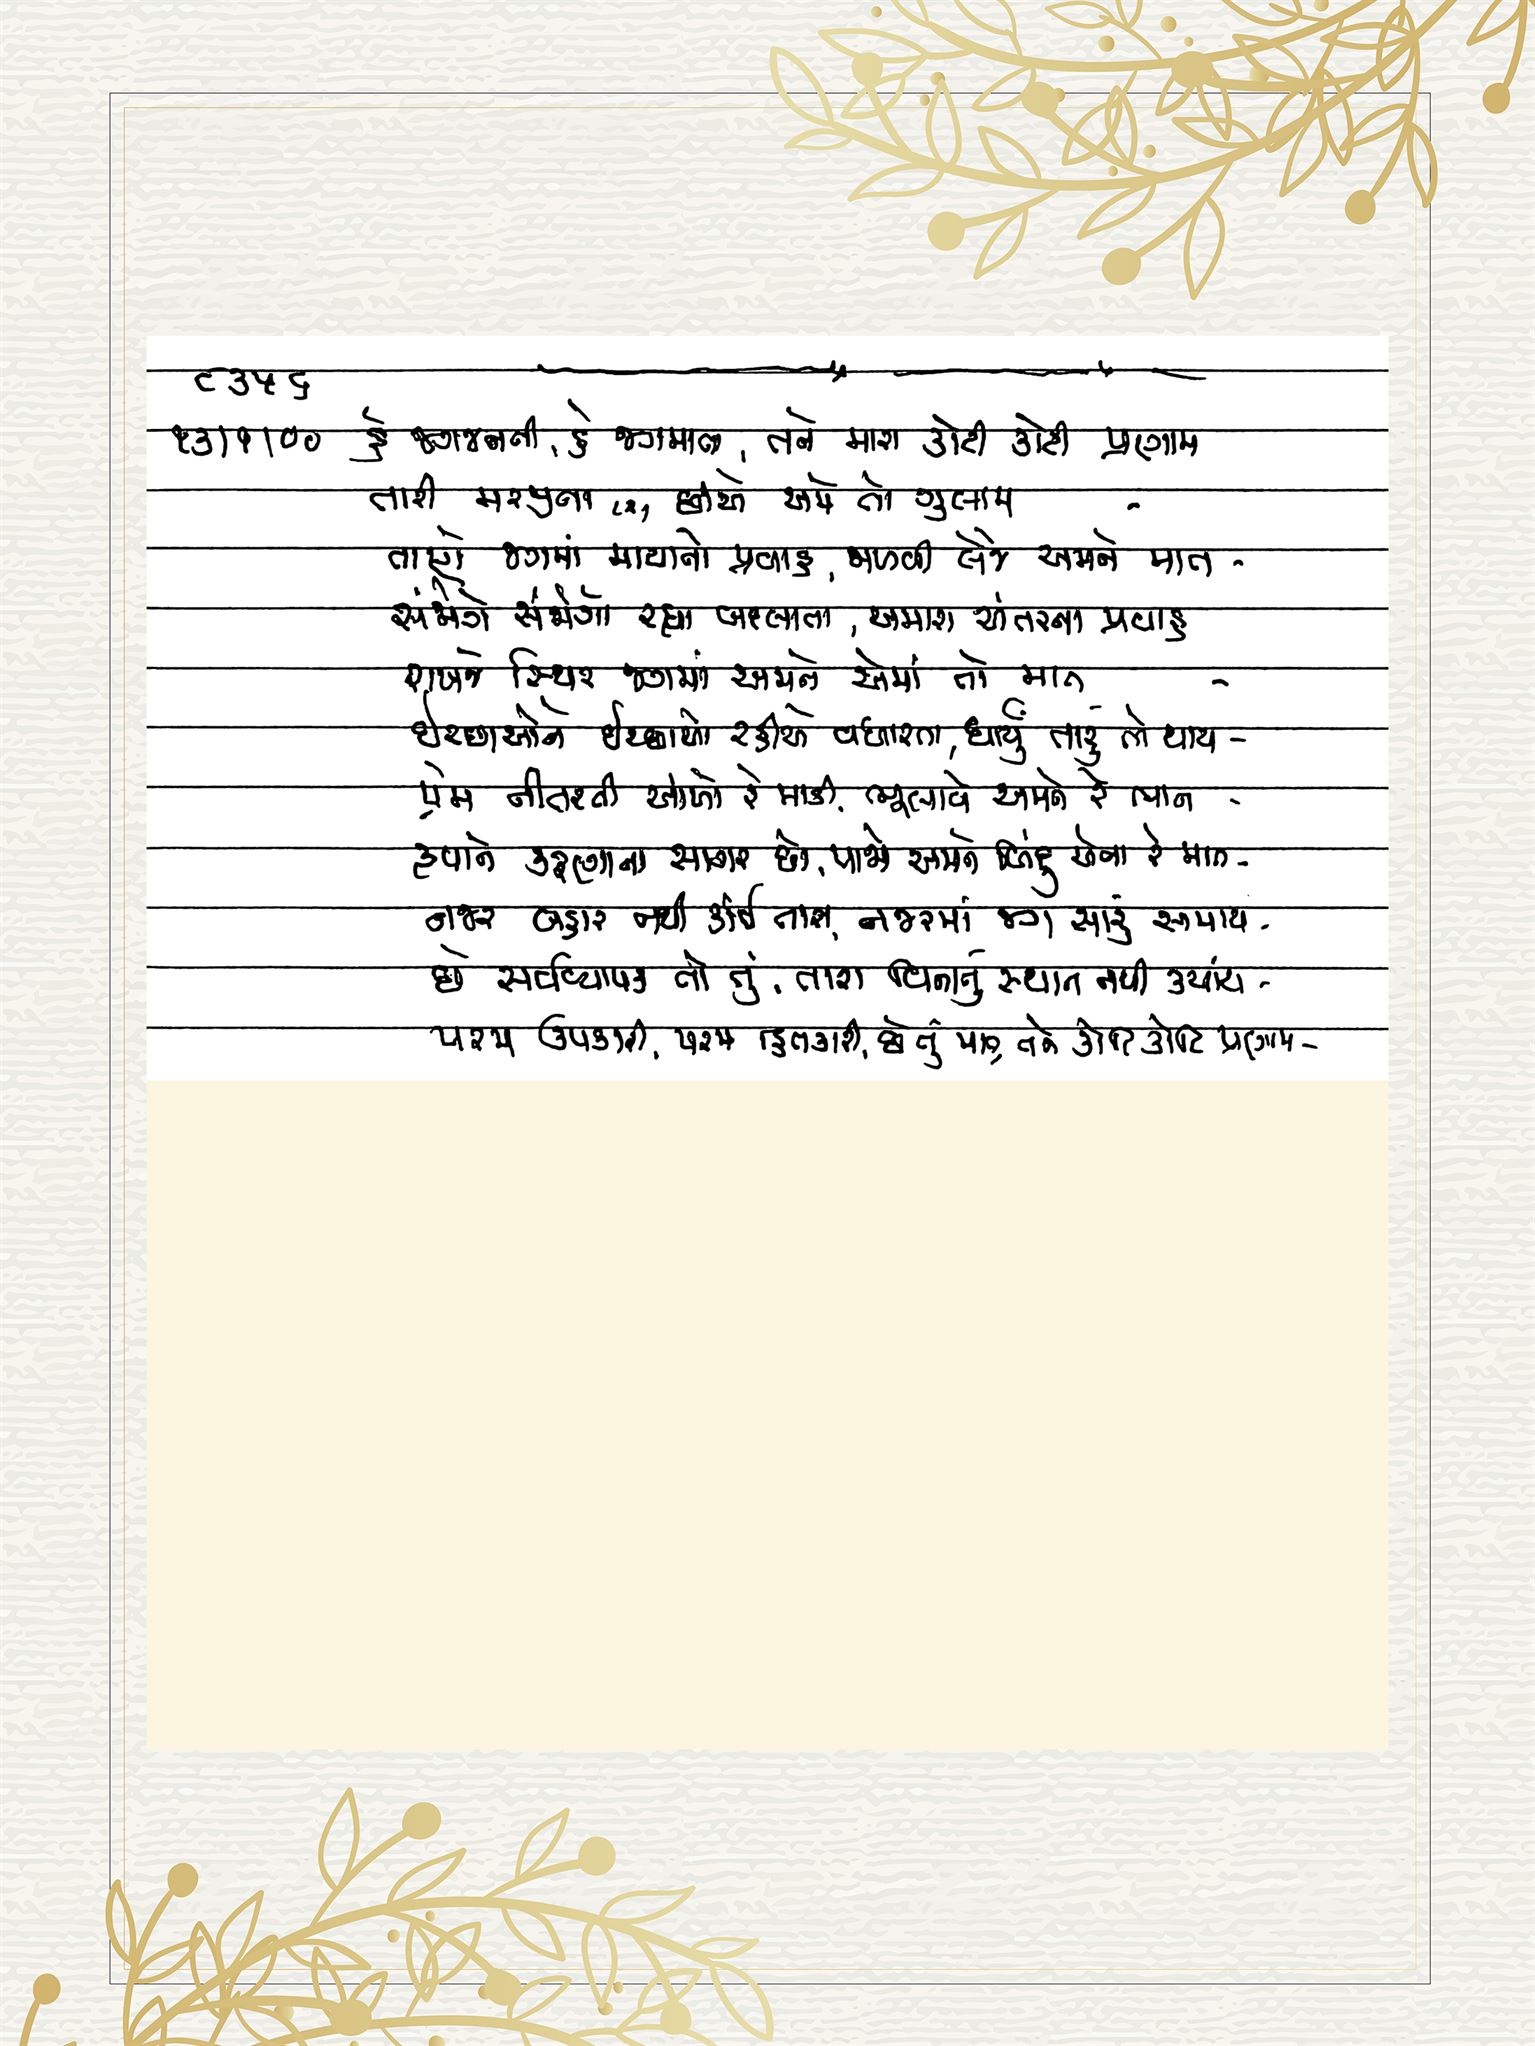 ૮૩૫૬
૨૩|૧|૦૦ હે જગજનની, હે જગમાત, તને મારા કોટી કોટી પ્રણામ
તારી મરજીના રે, છીએ અમે તો ગુલામ -
તાણશે જગમાં માયાનો પ્રવાહ, જાળવી લેજે અમને માત -
સંજોગે સંજોગો રહ્યા બદલાતા, અમારા અંતરના પ્રવાહ
રાખજે સ્થિર જગમાં અમને એમાં તો માત -
ઈચ્છાઓને ઈચ્છાઓ રહીએ વધારતા, ધાર્યું તારું તો થાય -
પ્રેમ નીતરતી આંખો રે માડી, ભૂલાવે અમને રે ભાન -
કૃપાને કરૂણાના સાગર છો, પાજો અમને બિંદુ એના રે માત -
નજર બહાર નથી કોઈ તારા, નજરમાં જગ સારું સમાય -
છે સર્વવ્યાપક તો તું, તારા વિનાનું સ્થાન નથી ક્યાંય -
પરમ ઉપકારી, પરમ હિતકારી, છે તું માત, તને કોટિ કોટિ પ્રણામ -